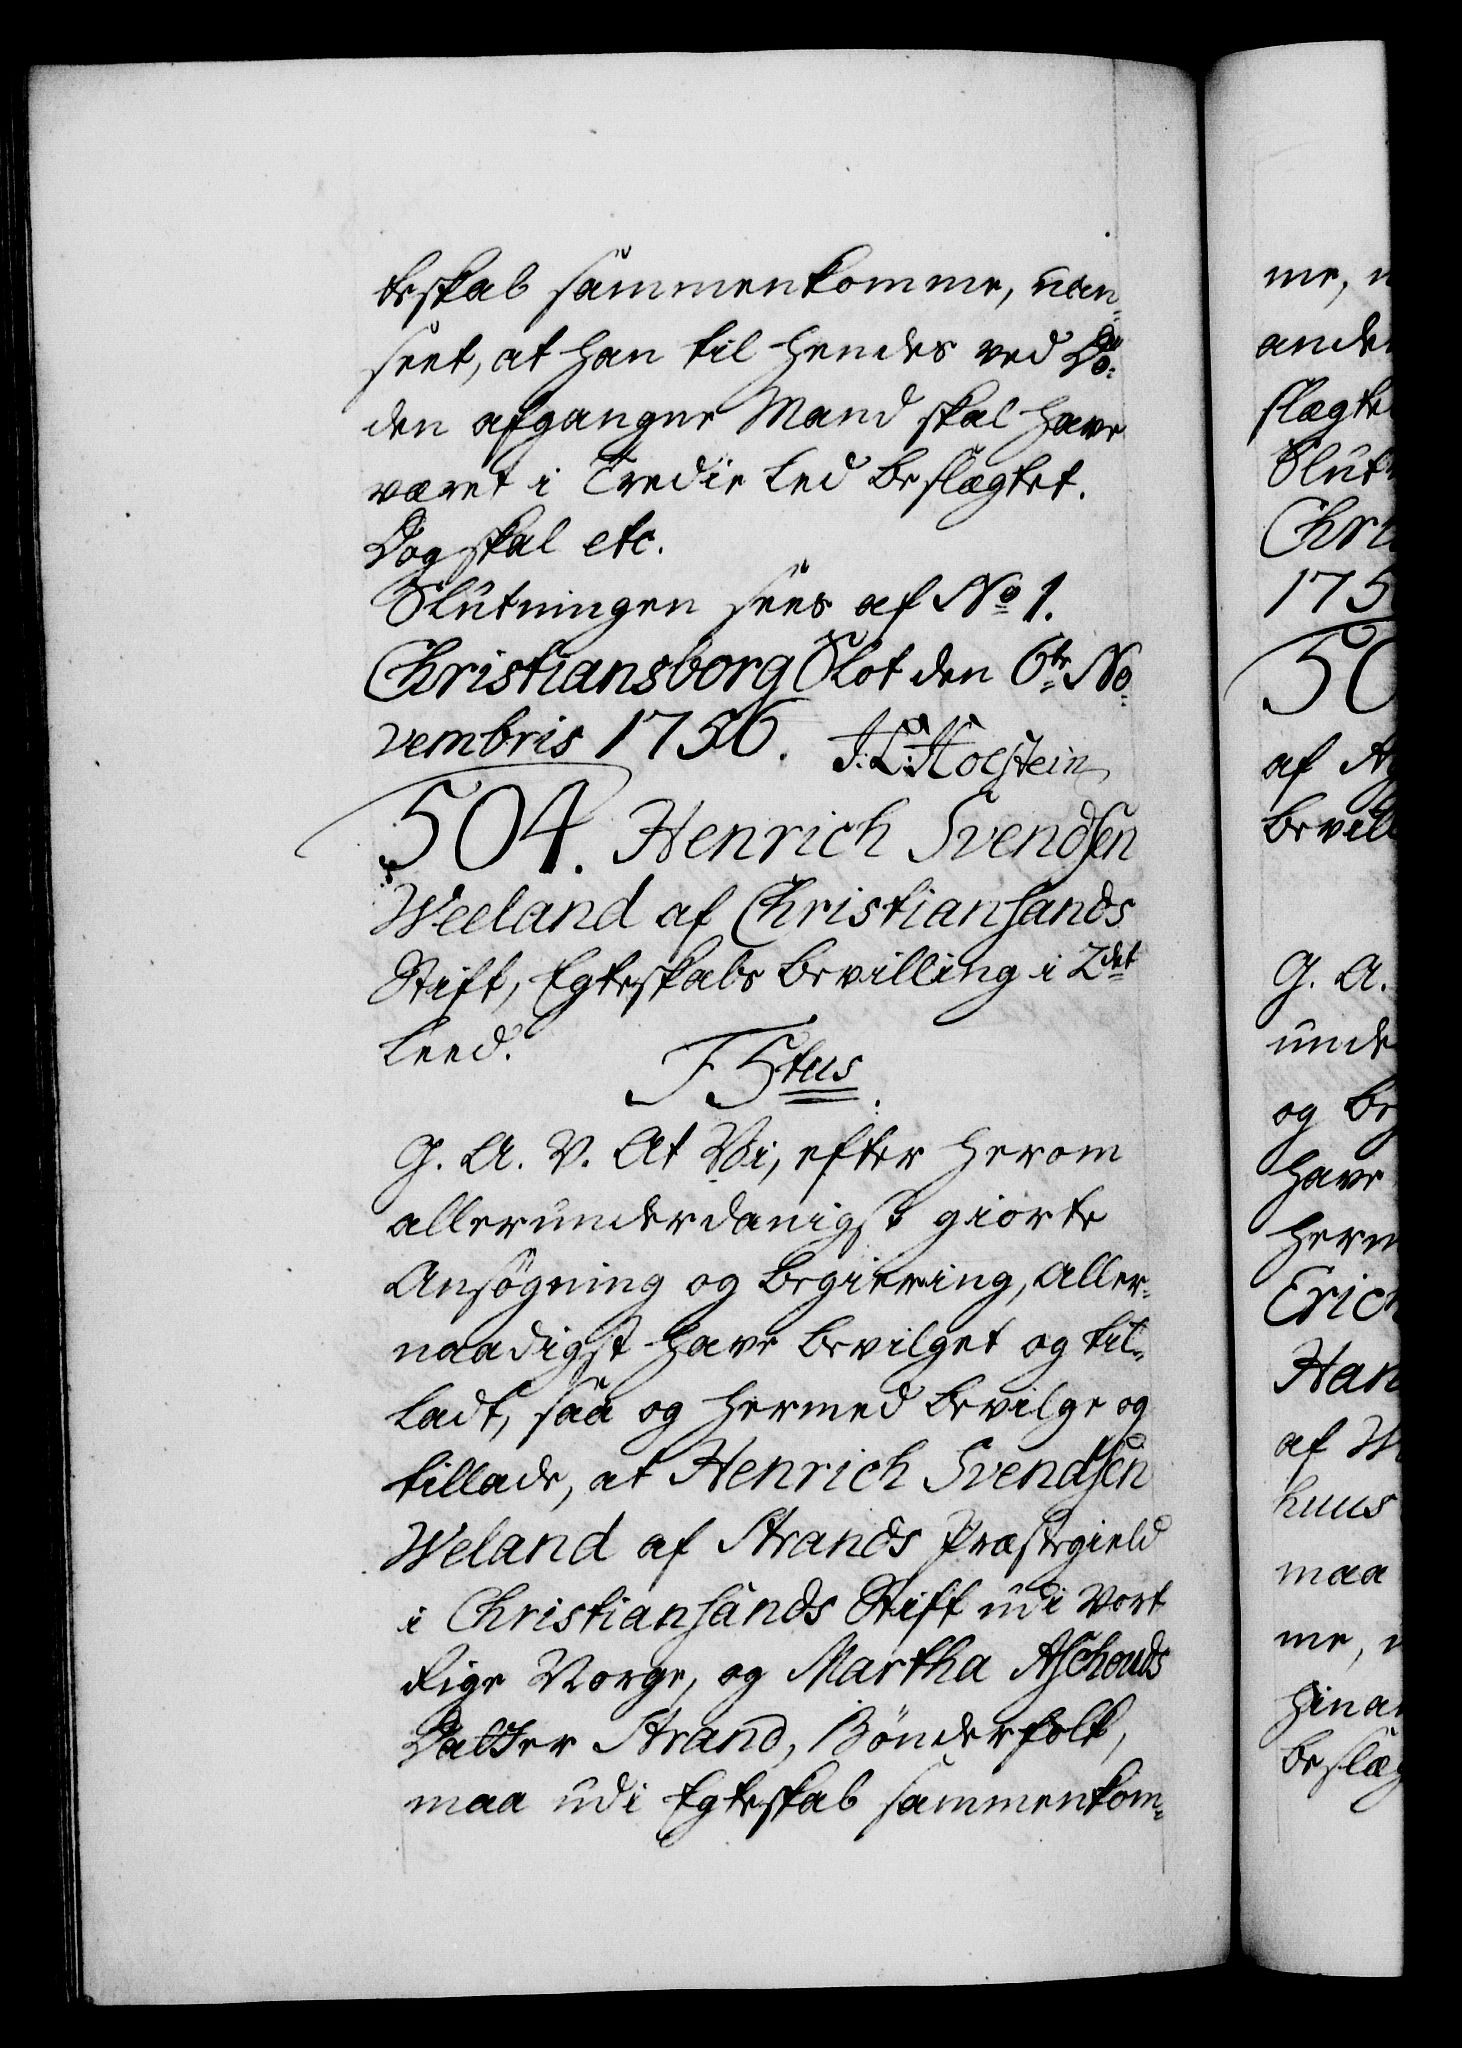 teskab sammenkomme, uan-
seet, at han til hendes ved Dø-
den afgangne Mand skal have
været i Tredie Led beslægtet.
Dog skal etc.
Slutningen sees af No 1.
Christiansborg Slot den 6te No-
vembris 1756. J: L: Holstein
504. Henrich Svendsen
Weeland af Christiansands
Stift, Egteskabs Bevilling i 2det
Leed.
F 5tus
G. A. V. At Vi, efter herom
allerunderdanigst giorte
Ansøgning og Begiering, Aller-
naadigst have bevilget og til-
ladt, saa og hermed bevilge og
tillade, at Henrich Svendsen
Weland af Strands Præstegield
i Christiansands Stift udi Vort
Rige Norge, og Martha Aschouds
Datter Strand, Bønderfolk,
maa udi Egteskab sammenkom-
me, u
ande
slægte
Slut
Chri
175
50
af A
Bevil
G. A.
unde
og Be
have
herm
Erich
Han
af W
huus
maa
me, u
hina
beslæg